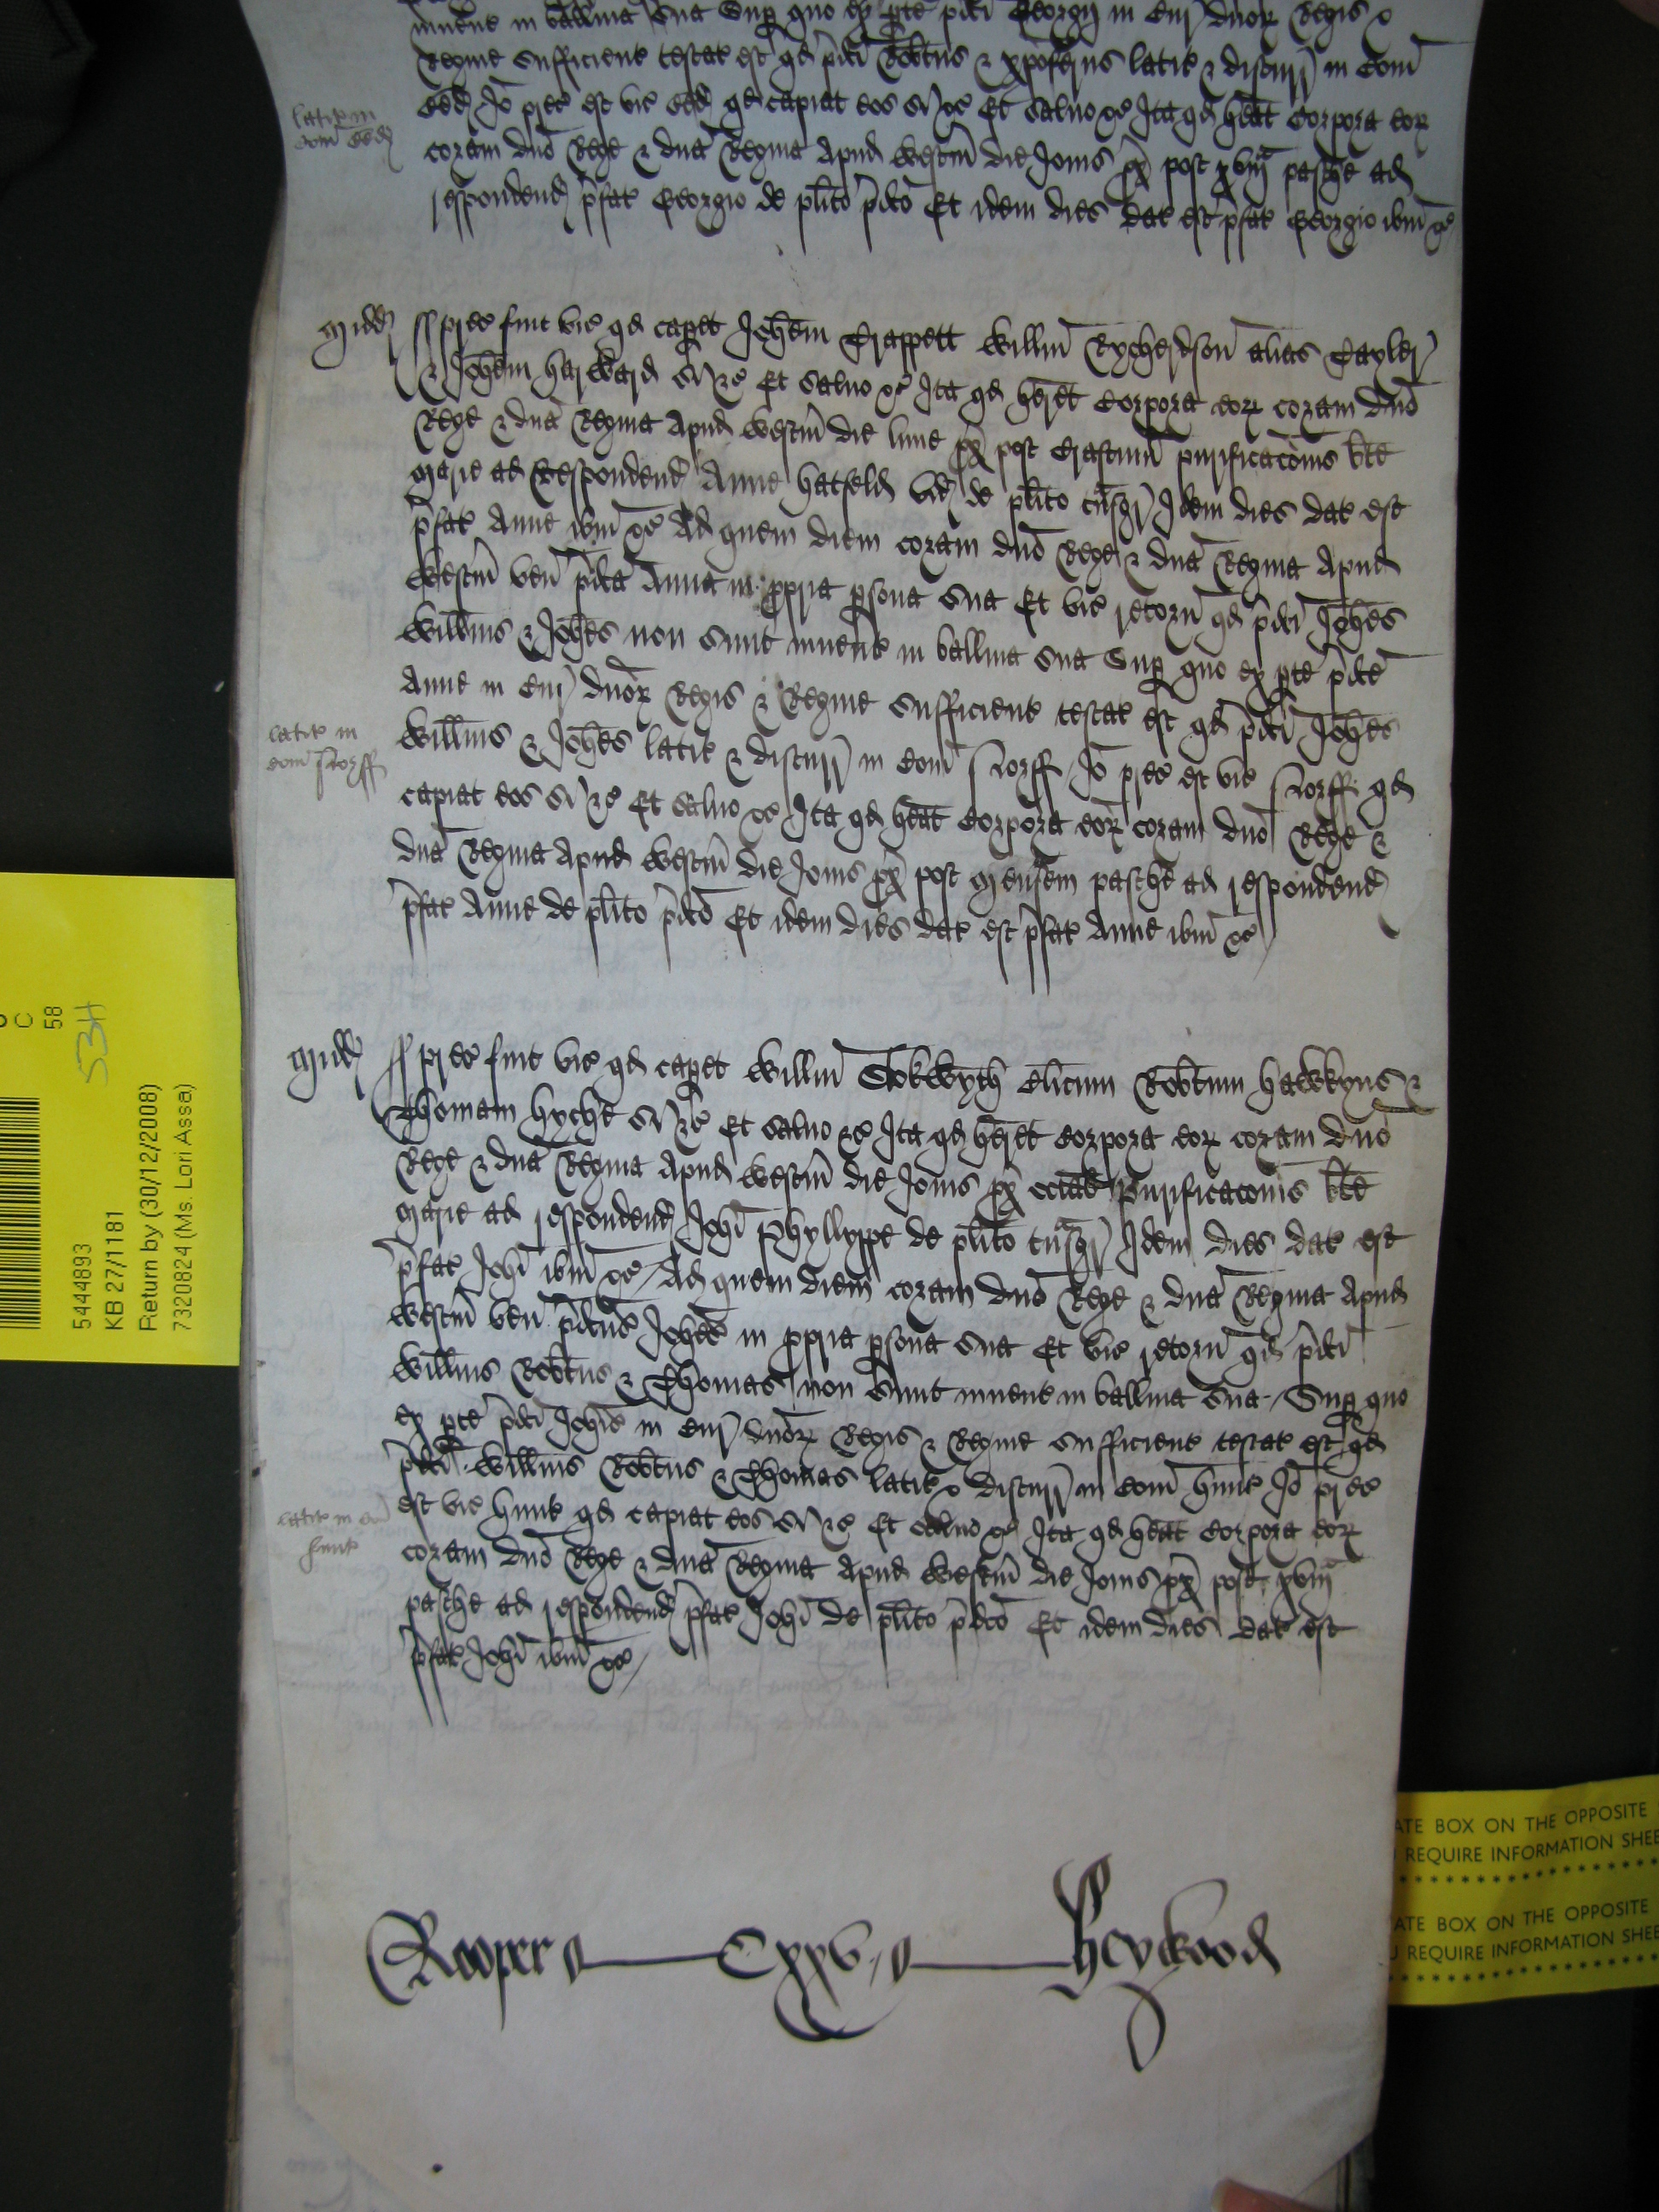 invent in balliva sua Sup quo ex pte pdci Georgii in Cur dnor Regis &
Regine sufficient testat est qd pdci Robtus & Xpoferus latit & discurr in Com
Ideo prec est vic qd capiat eos si &c Et salvo &c Ita qd heat corpora eor
latit in
com
coram dno Rege & dna Regina apud Westm die Jovis px post xvm pasche ad
respondend pfat Georgio de plito pdco Et idem dies dat est pfat Georgio ibm &c
Midd ss prec fuit vic qd capet Johem Trappett Willm Rycherdson alias Tayler
& Johem harward si &c Et salvo &c Ita qd heret corpora eor coram dno
Rege & dna Regina apud Westm die lune px post Crastinum purificacois bte
Marie ad Respondend Anne hatfeld vid de plito tnsgr Idem dies dat est
pfat Anne ibm &c Ad quem diem coram dno Rege & dna Regina apud
Westm ven pdca Anna in ppria psona sua Et vic retorn qd pdci Johes
Willms & Johes non sunt invent in balliva sua Sup quo ex pte pdce
Anne in Cur dnor Regis & Regine sufficient testat est qd pdci Johes
latit in
com Norff
Willms & Johes latit & discurr in Com Norff Io prec est vic Norff qd
capiat eos si &c Et salvo &c Ita qd heat corpora eor coram dno Rege &
dna Regina apud Westm die Jovis px post Mensem pasche ad respondend
pfat Anne de plito pdco Et idem dies dat est pfat Anne ibm &c
Midd ss prec fuit vic qd capet Willm clicum Robtum hawkyns &
Thomam hyche si &c Et salvo &c Ita qd heret corpora eor coram dno
Rege & dna Regina apud Westm die Jovis px octab purificacois bte
Marie ad respondend Johi Phyllyppe de plito tnsgr Idem dies dat est
pfat Johi ibm &c Ad quem diem coram dno Rege & dna Regina apud
Westm ven pdcus Johes in ppria psona sua Et vic retorn qd pdci
Willms Robtus & Thomas non sunt invent in balliva sua Sup quo
ex pte pdci Johis in Cur dnor Regis & Regine sufficient testat est qd
pdci Willms Robtus & Thomas latit & discurr in Com hunt Io prec
latit in com
hunt
est vic hunt qd capiat eos si &c Et salvo &c Ita qd heat corpora eor
coram dno Rege & dna Regina apud Westm die Jovis px post xvm
pasche ad respondend pfat Johi de plito pdco Et idem dies dat est
pfat Johi ibm &c
Rooper Cxxv Heywood
C
58
53H
5444893
KB 27/1181
Return by (30/12/2008)
7320824 (Ms. Lori Assa)
ATE BOX ON THE OPPOSITE
U REQUIRE INFORMATION SHEE
ATE BOX ON THE OPPOSITE
U REQUIRE INFORMATION SHEE